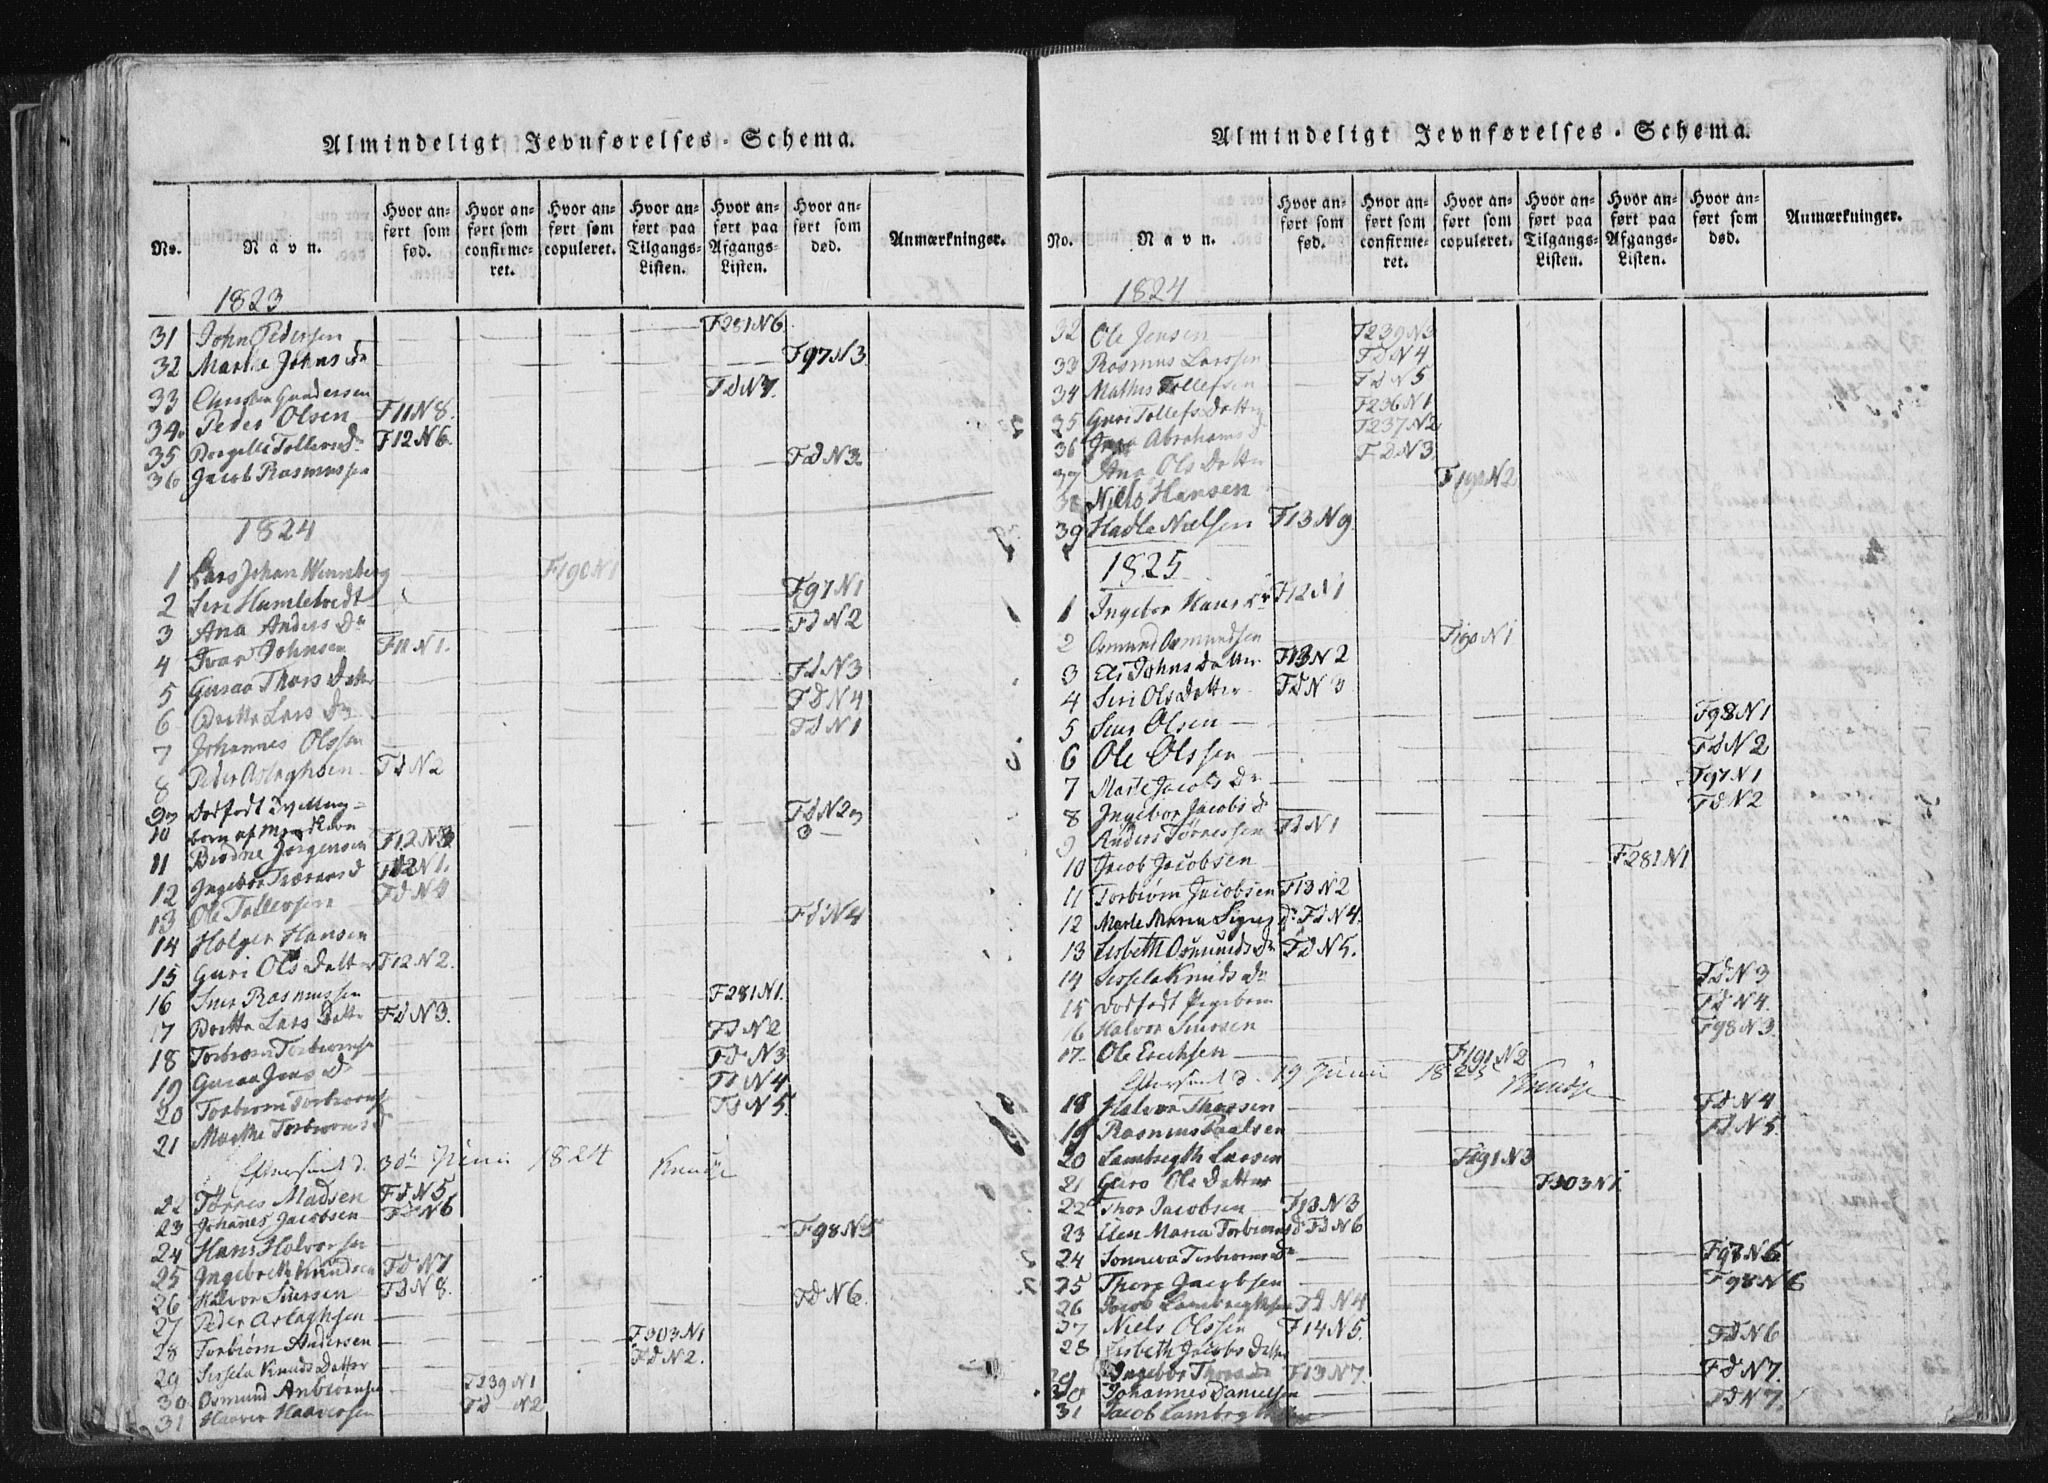 Almindeligt Jevnførelses-Schema.
No. Navn. Hvor anført som fød. Hvor anført som confirmeret. Hvor anført som copuleret. Hvor anført paa Tilgangs-Listen. Hvor anført paa Afgangs-Listen. Hvor anført som død. Anmærkninger.
1823
31 John Pedersen F281N6
32 Marthe Johns dr F97N3
33 Christen Gundersen FdN7.
34 Peder Olsen F11N8.
35 Tollevs Dr F12N6
36 Jacob Rasmussen FdN3
1824
1 Lars Johan Wennberg F190N1
2 Siri Humletvedt F97N1
3 Ana Anders Dr FdN2
4 Ivar Johnsen F11N1.
5 Guroo Thors Datter FdN3
6 Britta Lars Dr FDN4
7 Johannes Olssen FDN1
8 Peder Aslaghsen FdN2
9 Dødfødt Tvilling= FdN2
10 børn af Mandkiøn 3
11 Jørgensen F12N3
12 Ingebor d F12N1.
13 Ole Tollevsen FdN4
14 Holger Hansen FdN4
15 Guri Ols Datter F12N2.
16 Siur Rasmussen F281N1.
17 Britta Lars Datter FdN3.
18 Torbiørn Torbiørnsen FdN2
19 Guroo Jens D FdN3
20 Torbiørn Torbiørnsen FdN4
21 Marthe Torbiørns d FdN5.
Efterseet d. 3de Junii 1824
22 Tørres Madsen FdN5
23 Johanes Jacobsen FdN6
24 Hans Halvorsen F98N5
25 Ingebreth Knudsen FdN7
26 Halvor Siursen FdN8.
27 Peder Aslaghsen FdN6.
28 Torbiørn Andersen F303N1
29 Sissela Knuds Datter FdN2.
30 Osmund Anbiørnsen F239N1
31 Haaver Haaversen Fd N2
Almindeligt Jevnførelses-Schema.
No. Navn. Hvor anført som fød. Hvor anført som confirmeret. Hvor anført som copuleret. Hvor anført paa Tilgangs-Listen. Hvor anført paa Afgangs-Listen. Hvor anført som død. Anmærkninger.
1824
32 Ole Jensen F239N3
33 Rasmus Larssen FdN4
34 Mathis Tollefsen FdN5
35 Guri Tollefs Datter F236N1
36 Abrahams d F237N2
37 Ana Ols Datter FdN3
38 Niels Hansen F190N2
39 Hadle Nielsen F13N9
1825
1 Ingebor Hans dr F12N1
2 Osmund Osmundsen F190N1
3 Eli Johns Datter F13N2
4 Siri Ols Datter FdN3
5 Siur Olsen F98N1
6 Ole Olssen FdN2
7 Marte Jacobs Dr F97N1
8 Ingebor Jacobs d FdN2
9 Anders Tørressen FdN1
10 Jacob Jacobsen F281N1
11 Torbiørn Jacobsen F13N2
12 Marte Maria dr FdN4.
13 Lisbeth Osmunds Dr FdN5.
14 Sissela Knuds Dr FdN3
15 Dødfødt Pigebørn FdN4.
16 Halvor Siursen F98N3.
17 Ole Erichsen F191N2
Efterseet d. 19 Junii 1825
18 Halvor Thorsen FdN4
19 Rasmus Paalsen FdN5.
20 Lambregth Larsen F191N3
21 Guro Ole Datter F303N1.
22 Thor Jacobsen F13N3
23 Elen Maria Torbiørns dr FdN6
24 Sonneva Torbiørns Dr F97N5
25 Thore Jacobsen F98N6
26 Jacob Lambregthsen FdN4
27 Niels Olssen F14N5.
28 Lisbeth Jacobs Datter FdN6
29 Ingebor Thors dr F13N7. FdN7.
30 Johannes Danielsen FdN7
31 Jacob